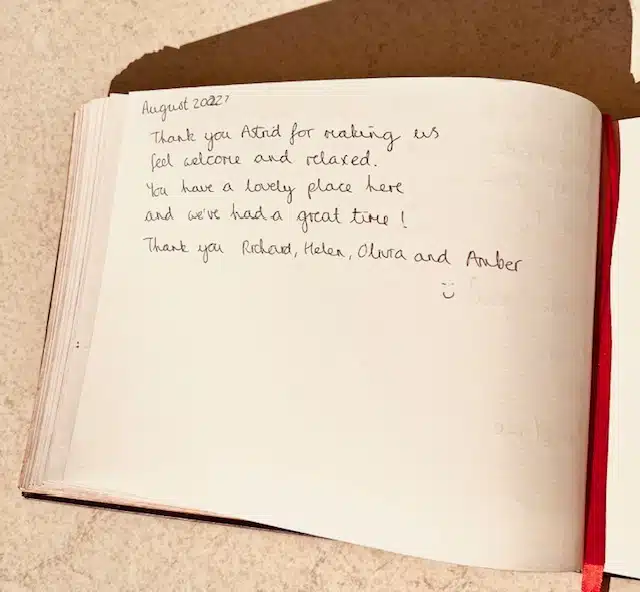 August 2022
Thank you Astrid for making us
feel welcome and relaxed.
You have a lovely place here
and we've had a great time!
Thank you Richard, Helen, Olivia and Amber